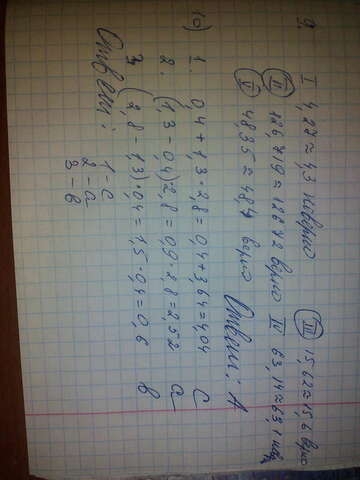 9. I 4,27 ≈ 4,3 неверно III 15,62 ≈ 15,6 верно
II 18,6719 ≈ 18,672 верно IV 63,14 ≈ 63,1
V 48,35 ≈ 48,4 верно Ответ: А
10) 1. 0,4 + 1,3 · 2,8 = 0,4 + 3,64 = 4,04 С
2. (1,3 - 0,4) · 2,8 = 0,9 · 2,8 = 2,52 а
3. (2,8 - 1,3) · 0,4 = 1,5 · 0,4 = 0,6 в
Ответ: 1 - с
2 - а
3 - в